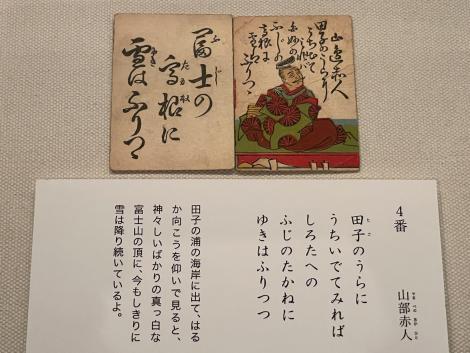 山邊赤人
田子のうらに
ふじの
高根に
雪はふりつゝ
冨士の
高根に
雪はふりつゝ
4番
山部赤人
田子のうらに
うちいでてみれば
しろたへの
ふじのたかねに
ゆきはふりつつ
田子の浦の海岸に出て、はる
か向こうを仰いで見ると、
神々しいばかりの真っ白な
富士山の頂に、今もしきりに
雪は降り続いているよ。